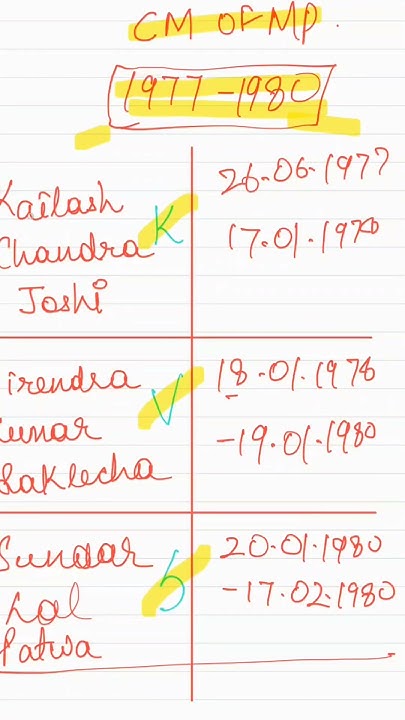 CM OF MP.
1977-1980
Kailash
Chandra K
Joshi
26.06.1977
17.01.1978
irendra
Kumar V
Saklecha
18.01.1978
-19.01.1980
Sundar
Lal S
Patwa
20.01.1980
-17.02.1980